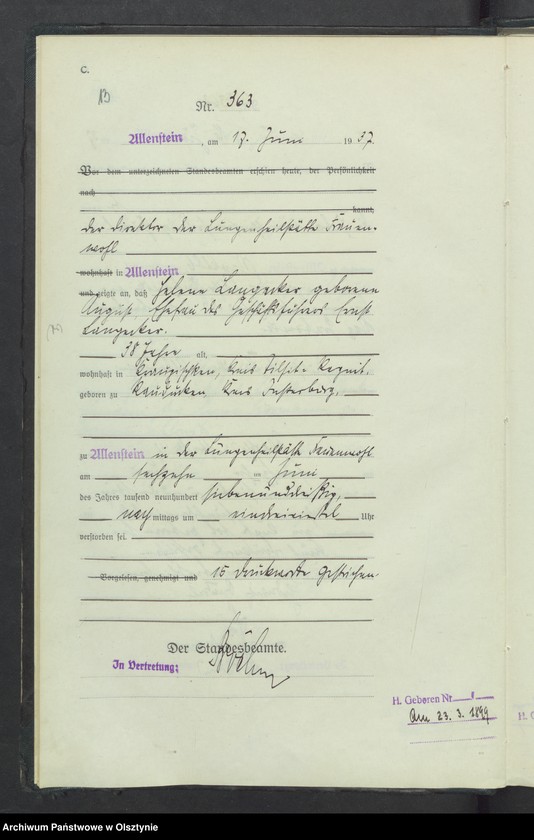 C.
13
Nr. 363
Allenstein, am 17. Juni 1937.
Vor dem unterzeichneten Standesbeamten erschien heute, der Persönlichkeit
nach
kannt,
der Direktor der Lungenheilstätte Frauen-
wohl
wohnhaft in Allenstein
und zeigte an, daß Helene Langecker geborene
August, Ehefrau des Geschäftsführers Ernst
Langecker.
38 Jahre alt,
wohnhaft in Kreis Tilsit-Ragnit,
geboren zu Kreis Insterburg,
zu Allenstein in der Lungenheilstätte Frauenwohl
am sechzehn im Juni
des Jahres tausend neunhundert siebenunddreißig,
nach mittags um eindreiviertel Uhr
verstorben sei.
Vorgelesen, genehmigt und 15 Druckworte gestrichen
Der Standesbeamte.
In Vertretung:
H. Geboren Nr.
Am 23. 3. 1899
H. G
Archiwum Państwowe w Olsztynie